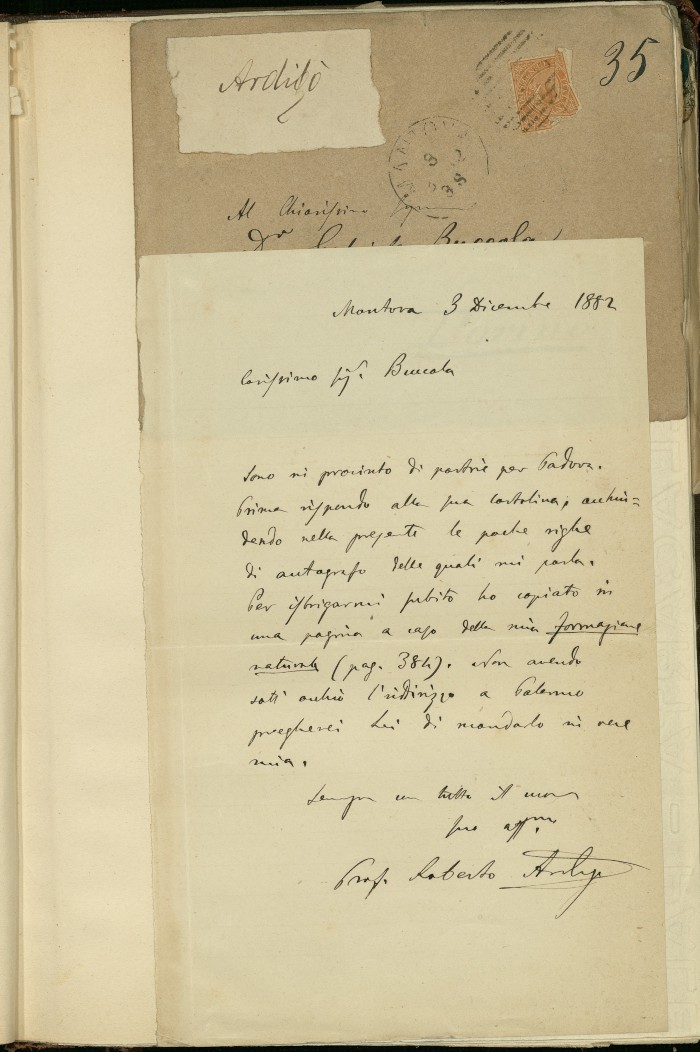 Ardigò
35
MANTOVA
Al Chiarissimo
Dr Buccola
Mantova 3 Dicembre 1882
Carissimo sigr. Buccola
Sono in procinto di partire per Padova.
Prima rispondo alla sua cartolina, acchiu=
dendo nella presente le poche righe
di autografo delle quali mi parla.
Per isbrigarmi subito ho copiato in
una pagina a caso della mia formazione
naturale (pag. 384). Non avendo
l'indirizzo a Palermo
pregherei Lei di mandarlo in vece
mia.
Sempre con tutto il cuore
suo affmo.
Prof. Roberto Ardigò